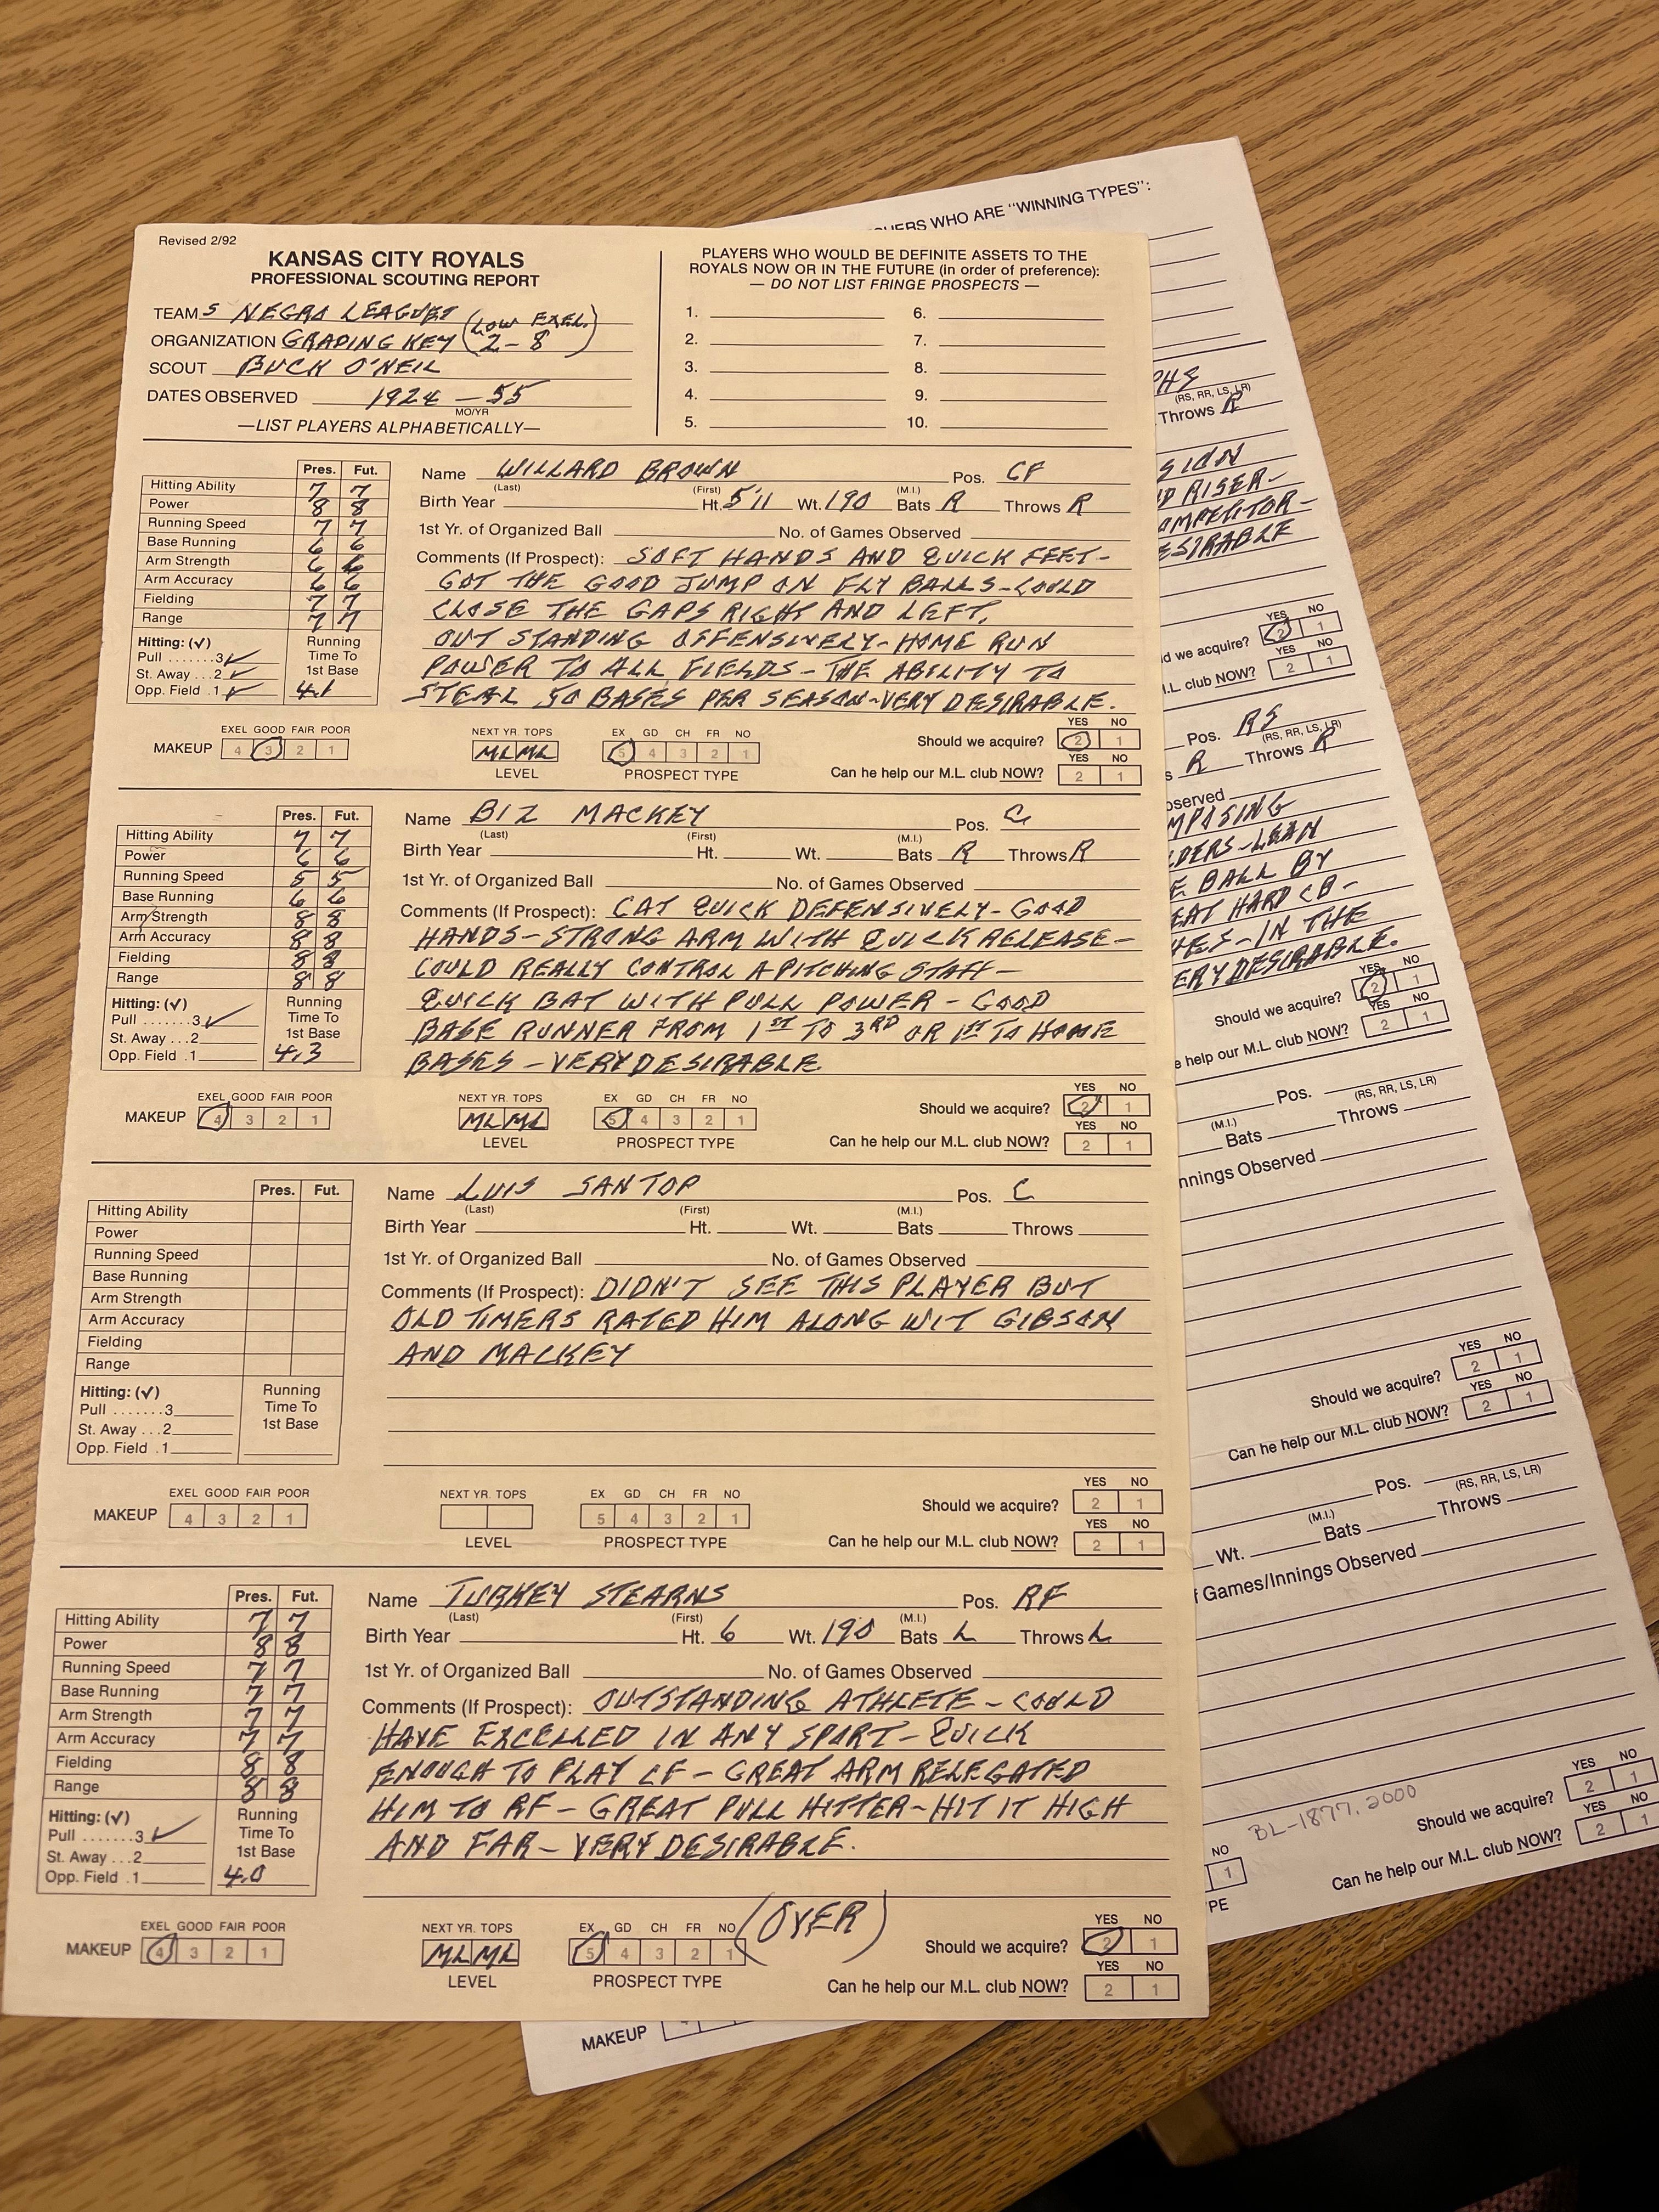 Revised 2/92
KANSAS CITY ROYALS
PROFESSIONAL SCOUTING REPORT
TEAM S NEGRO LEAGUES
ORGANIZATION GRADING KEY (LOW EXEL. 2-8)
SCOUT BUCK O'NEIL
DATES OBSERVED 1924 - 55
MO/YR
—LIST PLAYERS ALPHABETICALLY—
PLAYERS WHO WOULD BE DEFINITE ASSETS TO THE
ROYALS NOW OR IN THE FUTURE (in order of preference):
— DO NOT LIST FRINGE PROSPECTS —
1. 6.
2. 7.
3. 8.
4. 9.
5. 10.
Pres. Fut.
Hitting Ability 7 7
Power 8 8
Running Speed 7 7
Base Running 6 6
Arm Strength 6 6
Arm Accuracy 6 6
Fielding 7 7
Range 7 7
Hitting: (✓) Running
Pull .......3 ✓ Time To
St. Away ...2 ✓ 1st Base
Opp. Field .1 ✓ 4.1
Name WILLARD BROWN Pos. CF
(Last) (First) (M.I.)
Birth Year Ht. 5'11 Wt. 190 Bats R Throws R
1st Yr. of Organized Ball No. of Games Observed
Comments (If Prospect): SOFT HANDS AND QUICK FEET-
GOT THE GOOD JUMP ON FLY BALLS-COULD
CLOSE THE GAPS RIGHT AND LEFT.
OUT STANDING OFFENSIVELY-HOME RUN
POWER TO ALL FIELDS-THE ABILITY TO
STEAL 50 BASES PER SEASON-VERY DESIRABLE.
EXEL GOOD FAIR POOR
MAKEUP 4 3 2 1
NEXT YR. TOPS
ML ML
LEVEL
EX GD CH FR NO
5 4 3 2 1
PROSPECT TYPE
YES NO
Should we acquire? 2 1
YES NO
Can he help our M.L. club NOW? 2 1
Pres. Fut.
Hitting Ability 7 7
Power 6 6
Running Speed 5 5
Base Running 6 6
Arm Strength 8 8
Arm Accuracy 8 8
Fielding 8 8
Range 8 8
Hitting: (✓) Running
Pull .......3 ✓ Time To
St. Away ...2 1st Base
Opp. Field .1 4.3
Name BIZ MACKEY Pos. C
(Last) (First) (M.I.)
Birth Year Ht. Wt. Bats R Throws R
1st Yr. of Organized Ball No. of Games Observed
Comments (If Prospect): CAT QUICK DEFENSIVELY-GOOD
HANDS-STRONG ARM WITH QUICK RELEASE-
COULD REALLY CONTROL A PITCHING STAFF-
QUICK BAT WITH PULL POWER-GOOD
BASE RUNNER FROM 1ST TO 3RD OR 1ST TO HOME
BASES-VERY DESIRABLE.
EXEL GOOD FAIR POOR
MAKEUP 4 3 2 1
NEXT YR. TOPS
ML ML
LEVEL
EX GD CH FR NO
5 4 3 2 1
PROSPECT TYPE
YES NO
Should we acquire? 2 1
YES NO
Can he help our M.L. club NOW? 2 1
Pres. Fut.
Hitting Ability
Power
Running Speed
Base Running
Arm Strength
Arm Accuracy
Fielding
Range
Hitting: (✓) Running
Pull .......3 Time To
St. Away ...2 1st Base
Opp. Field .1
Name LUIS SANTOP Pos. C
(Last) (First) (M.I.)
Birth Year Ht. Wt. Bats Throws
1st Yr. of Organized Ball No. of Games Observed
Comments (If Prospect): DIDN'T SEE THIS PLAYER BUT
OLD TIMERS RATED HIM ALONG WIT GIBSON
AND MACKEY
EXEL GOOD FAIR POOR
MAKEUP 4 3 2 1
NEXT YR. TOPS
LEVEL
EX GD CH FR NO
5 4 3 2 1
PROSPECT TYPE
YES NO
Should we acquire? 2 1
YES NO
Can he help our M.L. club NOW? 2 1
Pres. Fut.
Hitting Ability 7 7
Power 8 8
Running Speed 7 7
Base Running 7 7
Arm Strength 7 7
Arm Accuracy 7 7
Fielding 8 8
Range 8 8
Hitting: (✓) Running
Pull .......3 ✓ Time To
St. Away ...2 1st Base
Opp. Field .1 4.0
Name TURKEY STEARNS Pos. RF
(Last) (First) (M.I.)
Birth Year Ht. 6 Wt. 190 Bats L Throws L
1st Yr. of Organized Ball No. of Games Observed
Comments (If Prospect): OUTSTANDING ATHLETE-COULD
HAVE EXCELLED IN ANY SPORT-QUICK
ENOUGH TO PLAY CF-GREAT ARM RELEGATED
HIM TO RF-GREAT PULL HITTER-HIT IT HIGH
AND FAR-VERY DESIRABLE.
(OVER)
EXEL GOOD FAIR POOR
MAKEUP 4 3 2 1
NEXT YR. TOPS
ML ML
LEVEL
EX GD CH FR NO
5 4 3 2 1
PROSPECT TYPE
YES NO
Should we acquire? 2 1
YES NO
Can he help our M.L. club NOW? 2 1
WHO ARE "WINNING TYPES":
(RS, RR, LS, LR)
Throws R
RISER-
COMPETITOR-
DESIRABLE
YES NO
we acquire? 2 1
YES NO
club NOW? 2 1
Pos. RS
(RS, RR, LS, LR)
R Throws R
BALL BY
HARD CB-
IN THE
VERY DESIRABLE.
YES NO
Should we acquire? 2 1
YES NO
help our M.L. club NOW? 2 1
Pos.
(M.I.) (RS, RR, LS, LR)
Bats Throws
Innings Observed
YES NO
Should we acquire? 2 1
YES NO
Can he help our M.L. club NOW? 2 1
Pos.
(M.I.) (RS, RR, LS, LR)
Wt. Bats Throws
Games/Innings Observed
BL-1877.2000
NO
1
YES NO
Should we acquire? 2 1
YES NO
Can he help our M.L. club NOW? 2 1
MAKEUP